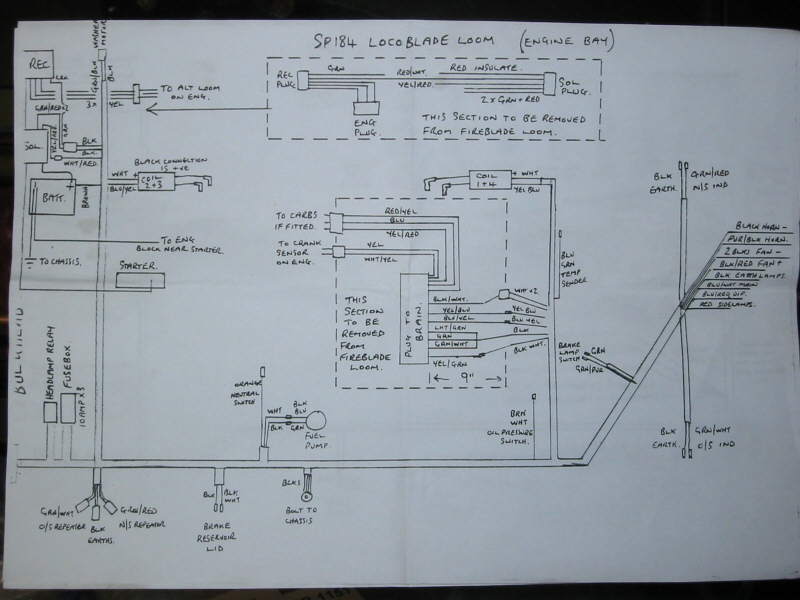 SP184 LOCOBLADE LOOM (ENGINE BAY)
WASHER MOTOR
REC
GRN/BLK
BLK
GRN/RED x2
3x
YEL
TO ALT LOOM ON ENG.
REC PLUG
GRN
RED/WHT.
RED INSULATE.
YEL/RED.
SOL PLUG.
2 x GRN + RED
ENG PLUG.
THIS SECTION TO BE REMOVED
FROM FIREBLADE LOOM.
SOL.
YEL/RED
GRN
BLK
BLK
WHT/RED.
BATT.
BROWN
WHT +
BLU/YEL
BLACK CONNECTION IS +VE
COIL 2+3
TO ENG BLOCK NEAR STARTER.
TO CHASSIS.
STARTER.
COIL 1+4
+ WHT
YEL BLU
TO CARBS IF FITTED.
RED/YEL
BLU
YEL/RED
TO CRANK SENSOR ON ENG.
YEL
WHT/YEL
BLU
GRN
TEMP
SENDER
THIS
SECTION
TO BE
REMOVED
FROM
FIREBLADE
LOOM.
PLUG TO BRAIN.
BLK/WHT.
WHT x2
YEL/BLU
YEL BLU
BLU/YEL
BLU YEL
LHT/GRN
BLK
GRN
GRN/WHT
BLK WHT.
YEL/GRN
9"
BLK EARTH.
GRN/RED N/S IND
BLACK HORN -
PUR/BLK HORN.
2 BLKS FAN -
BLK/RED FAN +
BLK EARTH LAMPS.
BLU/WHT MAIN
BLU/RED DIP.
RED SIDELAMPS.
BRAKE LAMP SWITCH
GRN
GRN/PUR
BLK EARTH.
GRN/WHT O/S IND
BULKHEAD
HEADLAMP RELAY
FUSEBOX
10 AMP x 3
ORANGE
NEUTRAL
SWITCH
WHT
BLK
BLU
BLK
GRN
FUEL PUMP.
BRN
WHT
OIL PRESSURE
SWITCH.
GRN/WHT O/S REPEATER
BLK EARTHS.
GRN/RED N/S REPEATER
BLK
BLK WHT
BRAKE
RESERVOIR
LID
BLKS
BOLT TO
CHASSIS